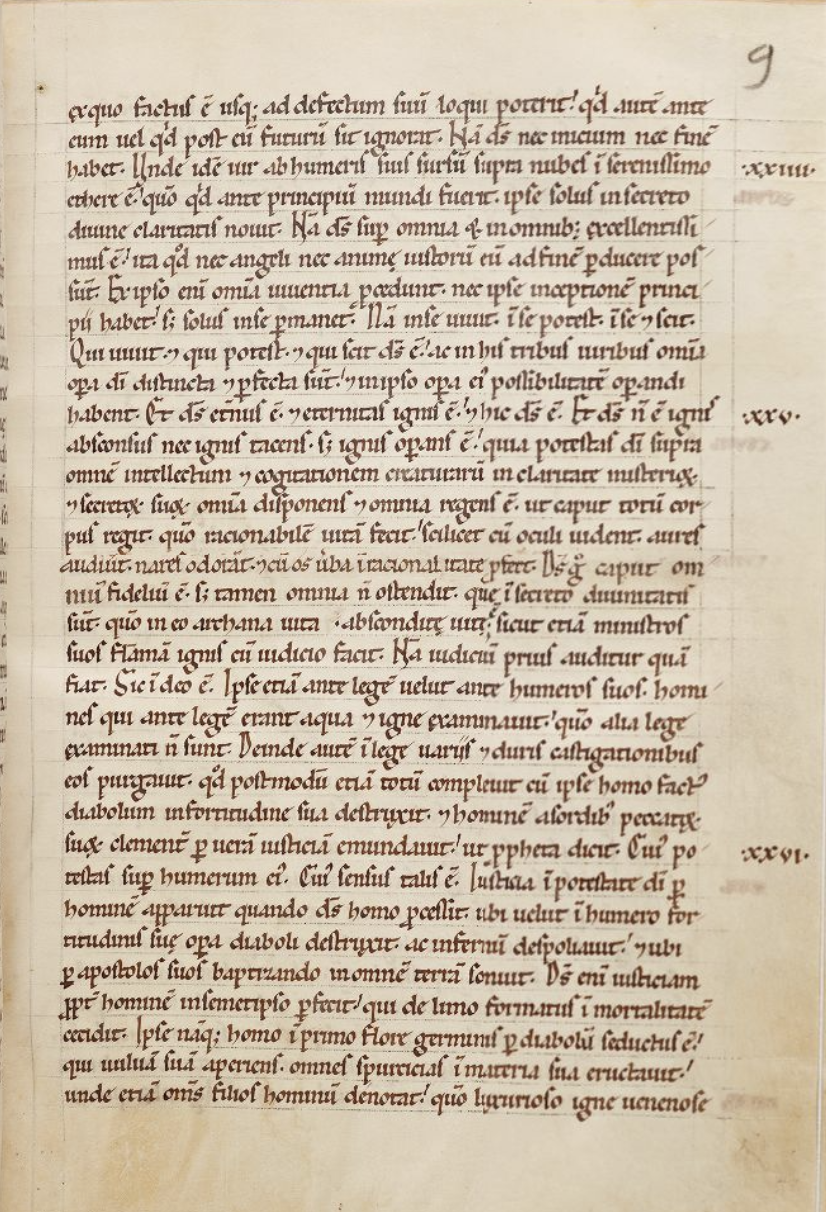 9
exquo factus ē usq; ad defectum suū loqui poterit! qđ autē ante
eum uel qđ post eū futurū sit ignorat. Nā ds̄ nec inicium nec finē
habet. Unde idē uir ab humeris suis sursū supra nubes ī serenissimo ·xxiiii·
ethere ē! quō qđ ante principiū mundi fuerit. ipse solus insecreto
diuine claritatis nouit. Nā ds̄ suꝑ omnia & inomnib; excellentissi
mus ē! ita qđ nec angeli nec animę iustorū eū adfinē ꝑducere pos
sūt. Ex ipso enī omīa uiuentia ꝓcedunt. nec ipse inceptionē princi
pii habet! s; solus inse ꝑmanet. Nā inse uiuit. ī se potest. ī se ⁊ scit.
Qui uiuit. ⁊ qui potest. ⁊ qui scit ds̄ ē! ac in his tribus uiribus omīa
oꝑa dī distincta ⁊ ꝑfecta sūt! ⁊ inipso oꝑa eiꝰ possibilitatē oꝑandi
habent. Et ds̄ etn̄us ē. ⁊ eternitas ignis ē! ⁊ hic ds̄ ē. Et ds̄ n̄ ē ignis ·xxv·
absconsus nec ignis tacens. s; ignis oꝑans ē! quia potestas dī supra
omnē intellectum ⁊ cogitationem creaturarū in claritate misterioꝝ.
⁊ secretoꝝ suoꝝ omīa disponens ⁊ omnia regens ē. ut caput totū cor
pus regit. quō racionabilē uitā fecit! scilicet cū oculi uident. aures
audiūt. nares odorāt. ⁊ cū os ūba ī racionalitate ꝓfert. Ds̄ g̊ caput om
niū fideliū ē. s; tamen omnia n̄ ostendit. quę ī secreto diuinitatis
sūt. quō in eo archana uita · abscondite uiuit. sicut etiā ministros
suos flāmā ignis cū iudicio facit. Nā iudiciū prius auditur quā
fiat. Sic ī deo ē. Ipse etiā ante legē uelut ante humeros suos. homi
nes qui ante legē erant aqua ⁊ igne examinauit! quō alia lege
examinati n̄ sunt. Deinde autē ī lege uariis ⁊ duris castigationibus
eos purgauit. qđ postmodū etiā totū compleuit cū ipse homo factꝰ
diabolum infortitudine sua destruxit. ⁊ hominē asordibꝰ peccatoꝝ.
suoꝝ clement̄ ꝑ uerā iusticiā emundauit! ut ꝓpheta dicit. Cuiꝰ po ·xxvi·
testas suꝑ humerum eiꝰ. Cuiꝰ sensus talis ē. Iusticia ī potestate dī ꝑ
hominē apparuit quando ds̄ homo ꝓcessit. ubi uelut ī humero for
titudinis suę oꝑa diaboli destruxit. ac infernū despoliauit! ⁊ ubi
ꝑ apostolos suos baptizando inomnē terrā sonuit. Ds̄ enī iusticiam
ꝓpt̄ hominē insemetipso ꝑfecit! qui de limo formatus ī mortalitatē
cecidit. Ipse nāq; homo ī primo flore germinis ꝑ diabolū seductus ē!
qui uuluā suā aperiens. omnes spurcicias ī materia sua eructauit!
unde etiā om̄s filios hominū denotat! quō luxurioso igne uenenose